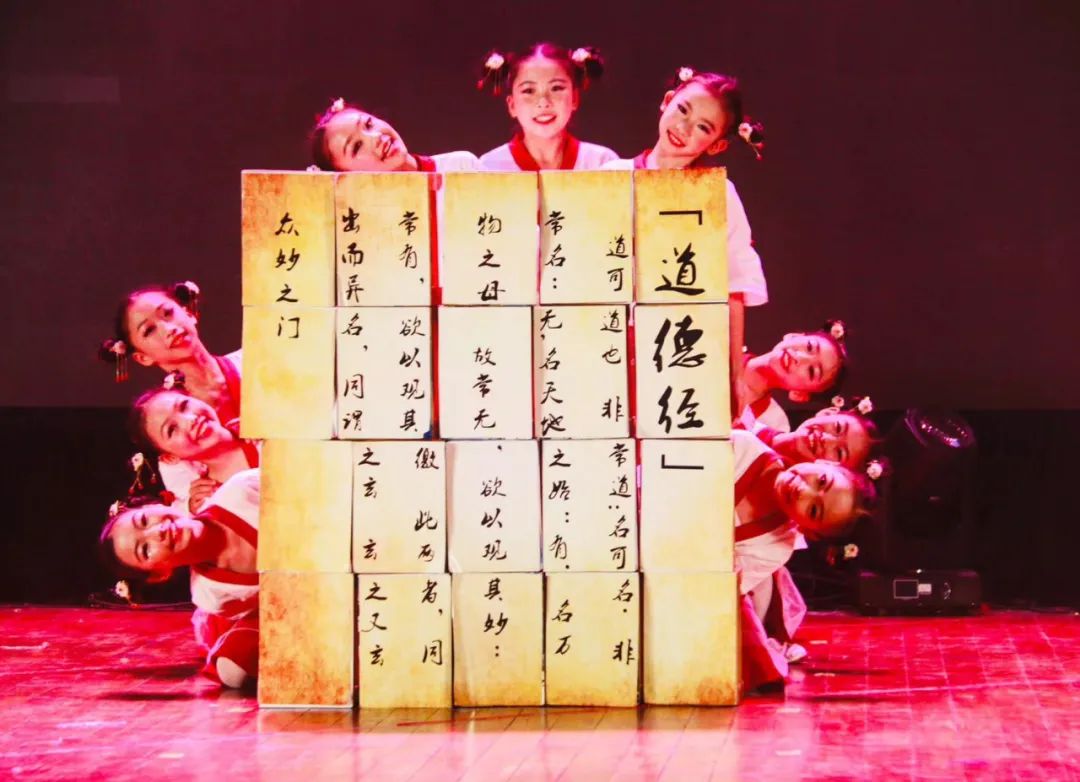 「道德经」
道可道也 非常道:名可名,非
常名:无,名天地之始:有,名万
物之母 故常无,欲以观其妙:
常有,欲以观其徼 此两者,同
出而异名,同谓之玄 玄之又玄
众妙之门